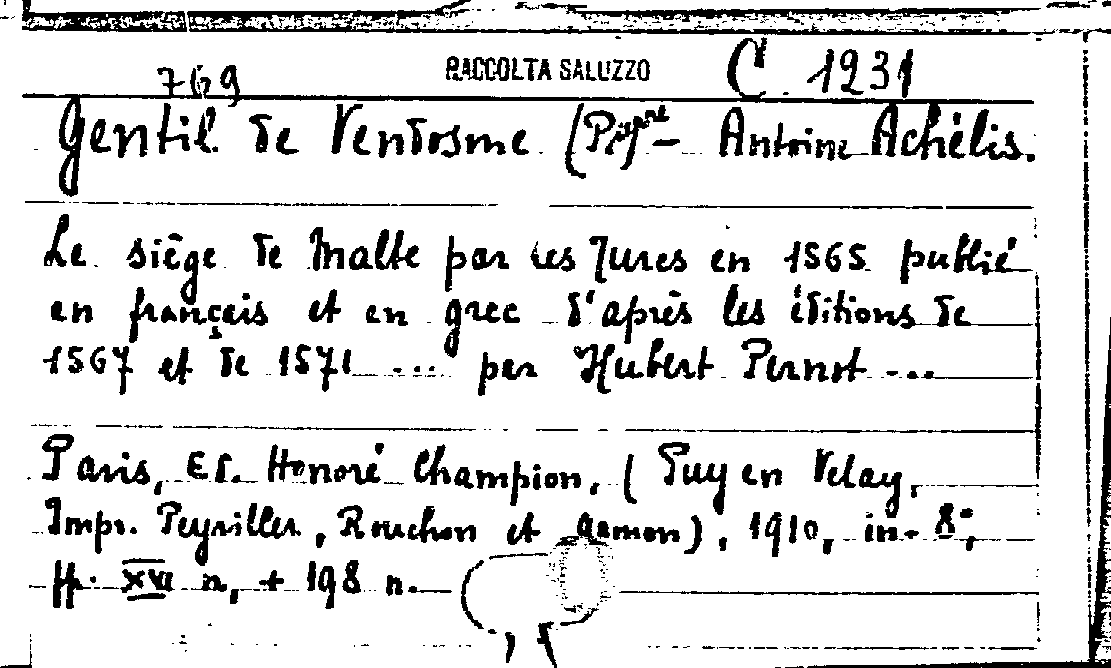 769 RACCOLTA SALUZZO C. 1231
Gentil de Vendosme (Pierre - Antoine Achélis.
Le siège de Malte par les Turcs en 1565 publié
en français et en grec d'après les éditions de
1567 et de 1571 .... par Hubert Pernot ...
Paris, Ed. Honoré Champion, (Puy en Velay,
Impr. Peyriller, Rouchon et Gamon), 1910, in-8°,
pp. XVI n, + 198 n.